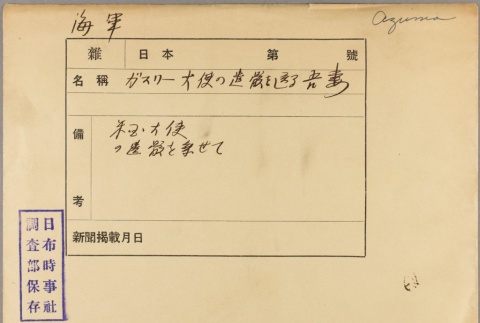 海軍
Azuma
雜 日本 第 號
名稱 ガスリー大使の遺骸を送る吾妻
備考
米国大使
の遺骸を乗せて
新聞掲載月日
日布時事社
調査部保存